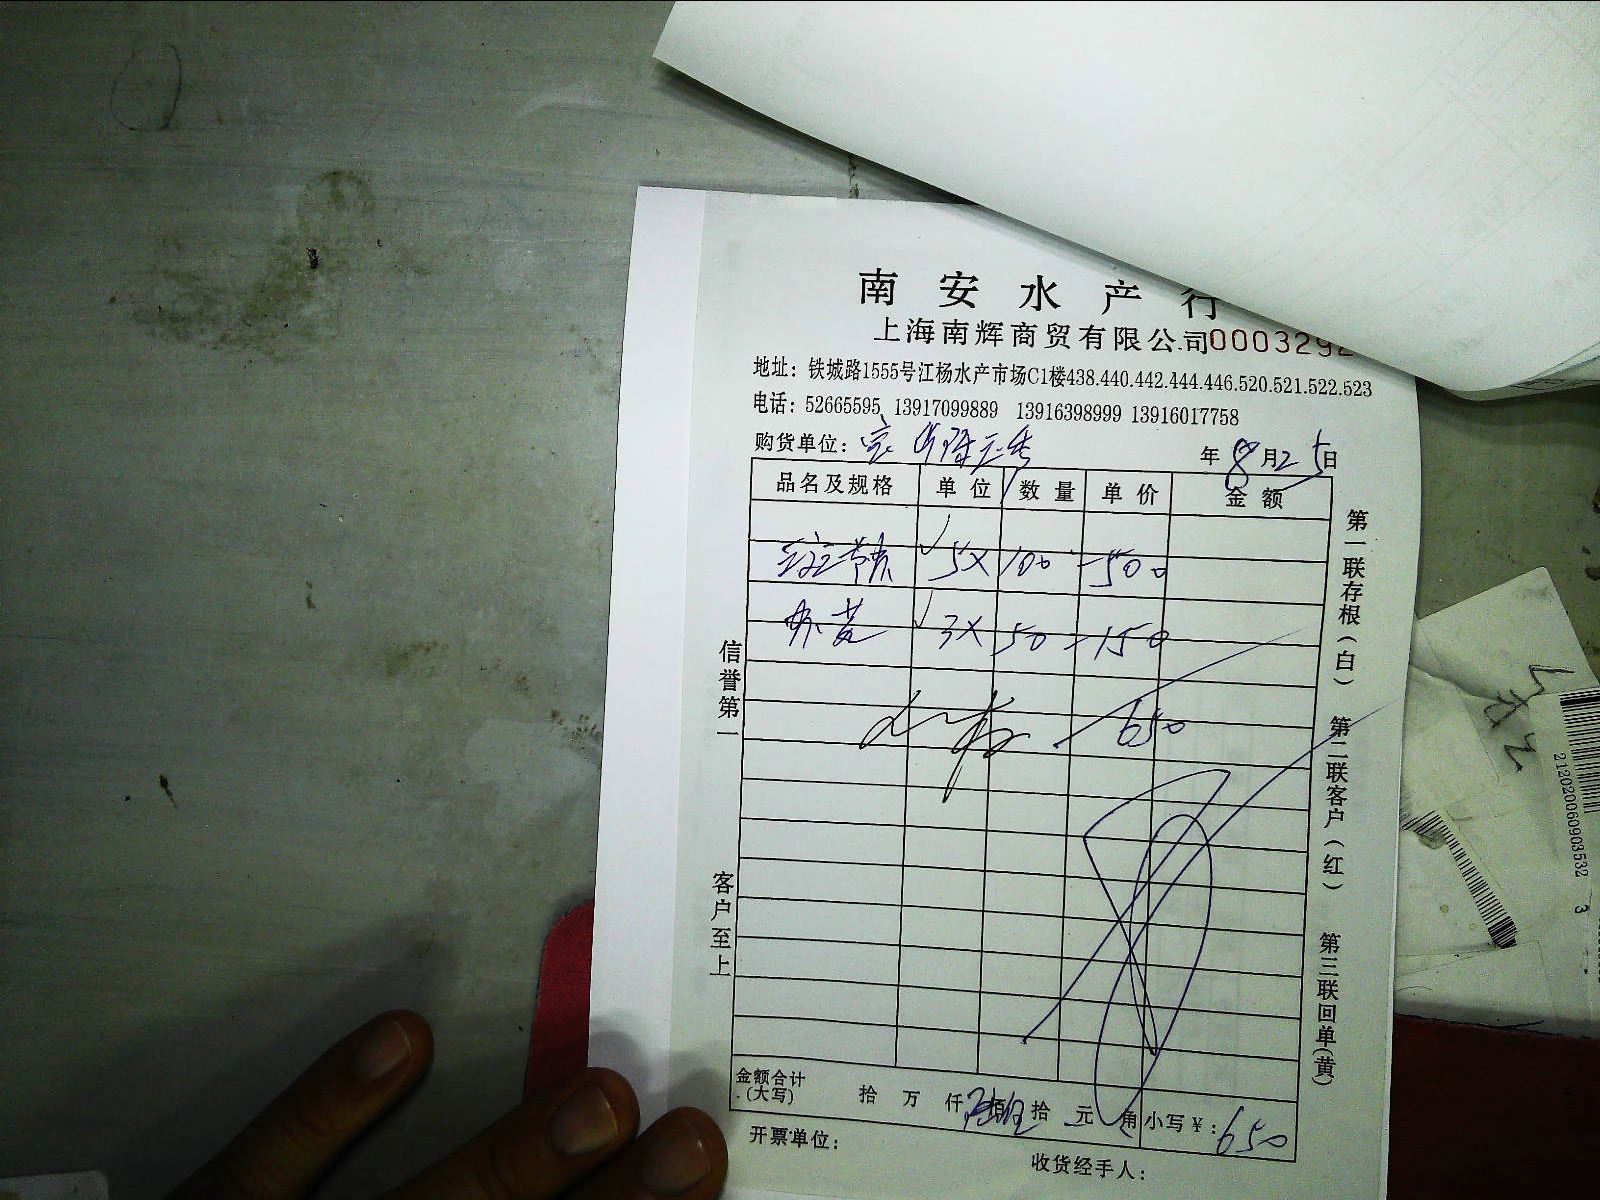 南安水产行
上海南辉商贸有限公司 000329
地址：铁城路1555号江杨水产市场C1楼438.440.442.444.446.520.521.522.523
电话：52665595 13917099889 13916398999 13916017758
购货单位：
年8月25日
品名及规格 单位 数量 单价 金额
5X 100 - 500
3X 50 - 150
650
信誉第一
客户至上
第一联存根（白） 第二联客户（红） 第三联回单（黄）
金额合计
(大写) 拾 万 仟 佰 拾 元 角 小写￥：650
开票单位：
收货经手人：
2120200609035323